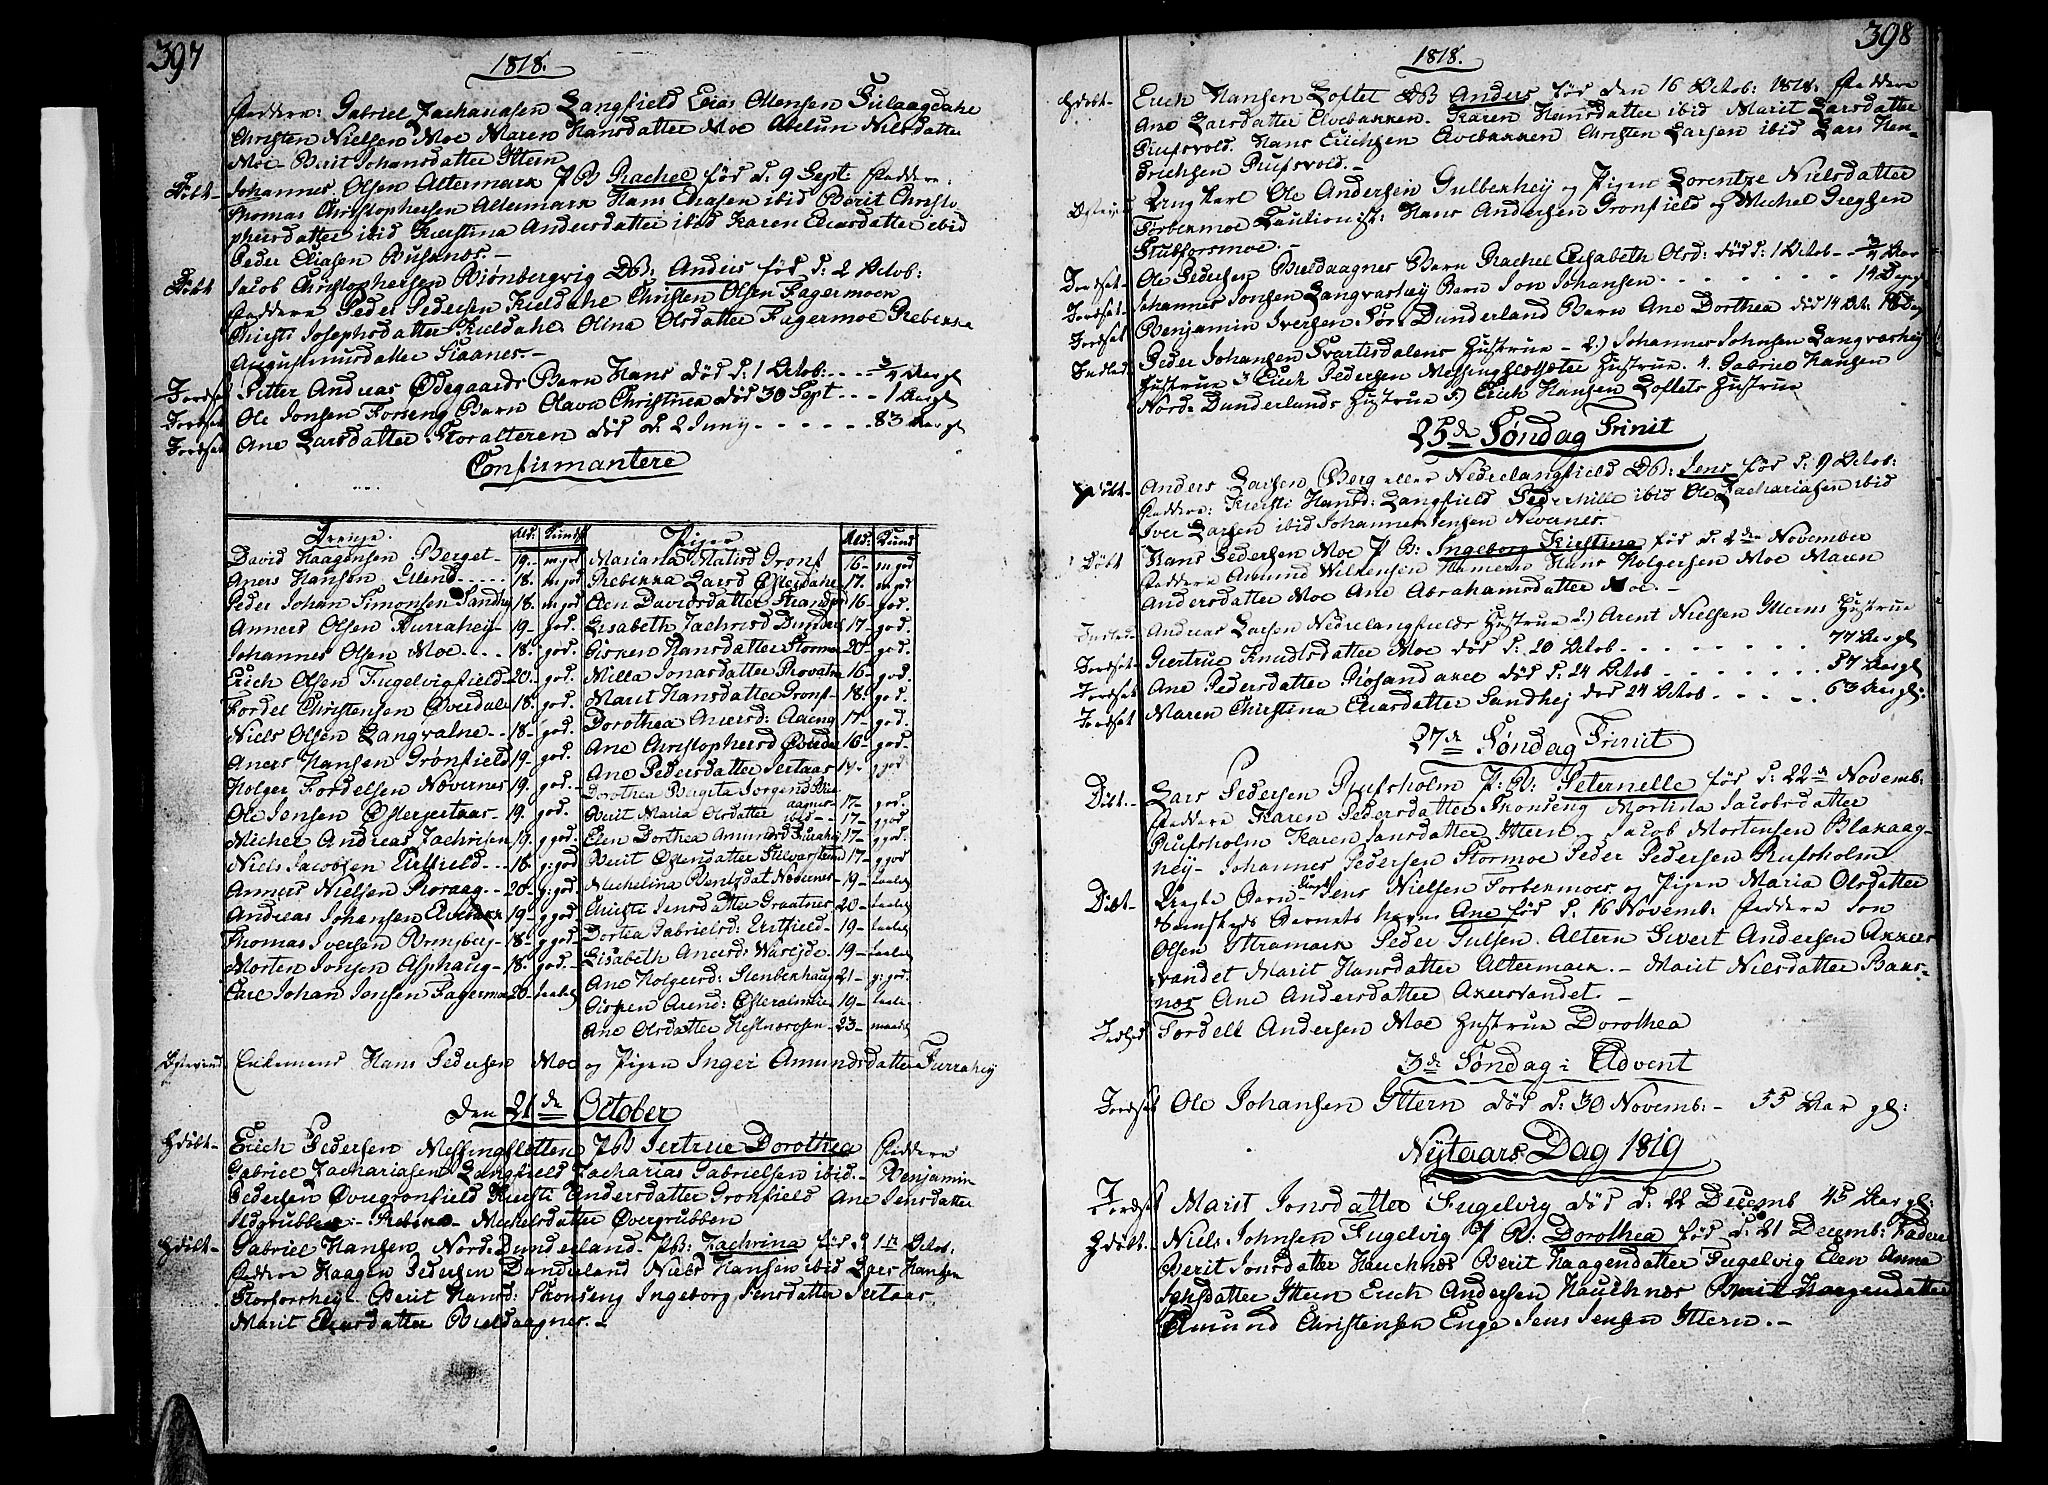 397
1818.
Faddere: Gabriel Zachariasen Langfield Elias Ottensen
Christen Nielsen Moe Maren Hansdatter Moe Abelun Nilsdatter
Moe Berit Johansdatter Ittern
Døbt - Johannes Olsen Altermark P B Rachel fød d: 9 Sept: Faddere:
Thomas Christophersen Altermark Hans Eliasen ibid Berit Christo
phersdatter ibid Kierstina Andersdatter ibid Karen Eliasdatter ibid
Peder Eliasen Busnæs. -
Døbt Jacob Christophersen Biønbergvig DB: Anders fød d: 2 Octob:
Faddere Peder Pedersen Kieldahl Christen Olsen Fagermoen
Kiersti Josephsdatter Kieldahl Olina Olsdatter Fagermoe Rebekka
Augustinusdatter Siaanes. -
Jordsat Petter Andreas Ødegaards Barn Hans død d: 1 Octob: - - - 3/4 Aar gl
Jordsat Ole Jonsen Forseng Barn Olava Christina død 30 Sept - - - 1 Aar gl
Jordsat Ane Larsdatter Storalteren død d. 2 Juny - - - - - - 83 Aar gl
Confirmantere
Drenge. Ald: Kundsk Piger Ald: Kund
David Haagensen Berget - 19 - m. god Mariana Matisd Grønf 16 - m god
Aners Hansen - - - - 18. m. god Rebekka Larsd Østerdahl 17. m god
Peder Johan Simonsen Sandhej 18. m god Elen Davidsdatter Strandjor 16 - god.
Anners Olsen Furrahej - 19 - god. Lisabeth Zachrisd Dunderl 17 - god.
Johannes Olsen Moe - - - 18. god. Cirken Hansdatter Stormoe 20 - god.
Erich Olsen Fugelvigfield - 20. god. Milla Jonasdatter 16 - god.
Fordel Christensen Øverdal 18. god. Marit Hansdatter Grønf - 18. god.
Niels Olsen Langvatne - - 18 - god. Dorothea Anersd: Aaeng 17 - god.
Aners Hansen Grønfield 19. god. Ane Christophersd 16 - god -
Holger Fordelsen Nævernes 19. god. - Ane Pedersdatter Jertaas 17 - ggod
Ole Jensen Østerjertaas - 19. god. Dorothea Bergita Jørgensd Biel
aagnes - 17 - god.
Michel Andreas Zachrisen 19. ggod. Berit Maria Olsdatter ibid - - 17 - ggod
Niels Jacobsen Urfield - - 18. g: god Elen Dorthea Amundsd Furahej 17 - ggod.
Anners Nielsen Storaag - - 20. g: god. Berit Østensdatter Selvarsteind 17 - ggod
Andreas Johansen Elvebakk 19 - ggod. Michelina Bentsdat Nævernes - 19 - taaled
Thomas Iversen Ormsberg - 18 - ggod. Christi Jensdatter Graatnes 20 - taaled
Morten Jonsen Asphaug - 18. god. - Dortea Gabrielsd: Urtfield - 19 - taaled
Carl Johan Jensen Fagermoe 20 - taaled Lisabeth Anersd: - 19 - taaled
Ane Holgersd: Stenbekhaug 21 - g: god.
Cirken Arensd: - 19 - taale
Ane Olsdatter Hestnæsosen - 23 - maadel
Enkemand Hans Pedersen Moe og Pigen Inger Amundsdatter Furrahey
Den 21de October
Hdøbt - Erich Pedersen Messingsletten P B Jertrue Dorothea Faddere
Gabriel Zachariasen Langfield Zacharias Gabrielsen ibid. - Benjamin
Pedersen Øvregrønfield Kiersti Andersdatter Grønfield Ane Jensdatter
Ildgrubben - Rebeka Michelsdatter Øvergrubben
Hdøbt - Gabriel Hansen Nord. Dunderland. PB: Zachrina fød d 1te Octob:
Faddere Haagen Pedersen Dunderland Niels Hansen ibid Lars Hansen
Storforshej - Berit Hansd: Skonseng Ingeborg Jensdatter Jertaas
Marit Eliasdatter Bieldaagnes. -
398
1818.
Hdøbt - Erich Hansen Loftet DB Anders fød den 16 Octob: 1818: Faddere
Ane Larsdatter Elvebakken. Karen Hansdatter ibid Marit Larsdatter
Rufsvold. Hans Erichsen Elvebakken Christen Larsen ibid Lars Hen-
Erichsen Rufsvold. -
Ung Karl Ole Andersen Gulbekhey og Pigen Lorentze Nielsdatter
Forbermoe Cautionist: Hans Andersen Grønfield og Michel Greghsen
Stubforsmoe. -
Jordsat - Ole Pedersen Bieldaagnes Barn Rachel Elisabeth Olsd: død d: 1 Octob - - 3/4 Aar
Jordsat - Johannes Jonsen Langvashey Barn Jon Johansen - - - - - - - 14 Dage
Jordsat Benjamin Iversen Sør. Dunderland Barn Ane Dorthea død 14 Oct.
Indled Peder Johansen Svartisdalens Hustrue - 2) Johannes Johnsen Langvashey
Hustrue 3 Erich Pedersen Messingslettets Hustrue. 4. Gabriel Hansen
Nord. Dunderlands Hustrue 5) Erich Hansen Loftets Hustrue
25de Søndag Trinit
Hdøbt - Anders Larsen Berg eller Nedrelangfield DB: Jens fød d: 9 Octob:
Faddere: Kiersti Hansd: Langfield Pedernille ibid Ole Zachariasen ibid
Iver Larsen ibid Johannes Jensen Nævernes.
Døbt Hans Pedersen Moe P B: Ingeborg Kirstina fød d. 2de November
Faddere Amund Wilkensen Hameren Hans Holgersen Moe Maren
Andersdatter Moe Ane Abrahamsdatter Moe. -
Indled Andreas Larsen Nedrelangfields Hustrue 2) Arent Nielsen Itterns Hustrue
Jordsat - Giertrue Knudsdatter Moe død d: 20 Octob - - - - - - - 77 Aar gl
Jordsat Ane Pedersdatter Røsandaxel død d: 24 Octob - - - - - - - 57 Aar gl
Jordsat Maren Christina Eliasdatter Sandhej død 24 Octob - - - - - 63 Aar gl:
27de Søndag Trinit
Døbt - Lars Pedersen Rufsholm P: B: Peternelle fød d: 22de Novemb:
Faddere Karen Pedersdatter Skonseng Mortina Jacobsdatter
Rufsholm Karen Jansdatter Ittern Jacob Mortensen Blakaag-
hey - Johannes Pedersen Stormoe Peder Pedersen Rufsholm
Døbt - Uægte Barn - Jens Nielsen Forbermoes og Pigen Maria Olsdatter
Barnets Navn Ane fød d: 16 Novemb: Faddere Jon
Olsen Altermark Peder Gulsen. Altern Sivert Andersen Akkers
vandet Marit Hansdatter Altermark. - Marit Nielsdatter Baas-
næs Ane Andersdatter Axersvandet. -
Indled Fordell Andersen Moe Hustrue Dorothea
3de Søndag i Advent
Jordsat Ole Johansen Ittern død d: 30 Novemb: - 55 Aar gl:
Nytaars Dag 1819
Jordsat Marit Jonsdatter Fugelvig død d: 22 Decemb 45 Aar gl:
Hdøbt. - Niels Johnsen Fugelvig P B: Dorothea fød d: 21 Decemb: Fadere
Berit Jonsdatter Hauchnes Berit Haagendatter Fugelvig Elen Anna
Jensdatter Ittern Erich Andersen Hauchnæs Berit Haagendatter
Amund Christensen Enge Jens Jensen Ittern. -